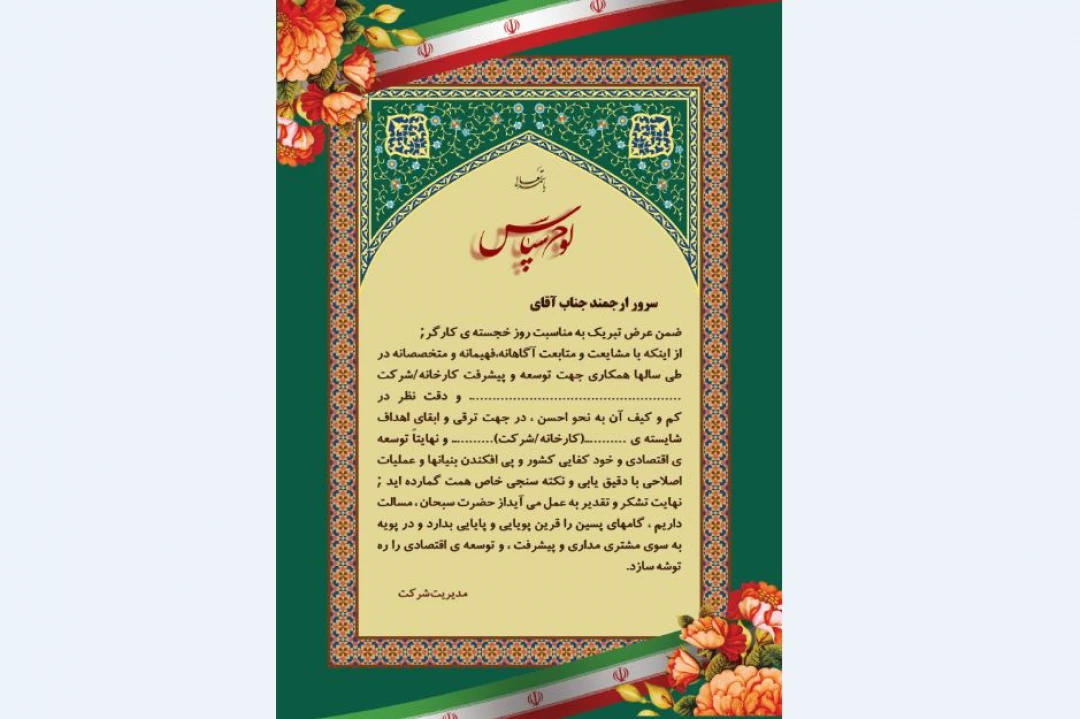 باسمه تعالی
لوح سپاس
سرور ارجمند جناب آقای
ضمن عرض تبریک به مناسبت روز خجسته ی کارگر ;
از اینکه با مشایعت و متابعت آگاهانه،فهیمانه و متخصصانه در
طی سالها همکاری جهت توسعه و پیشرفت کارخانه/شرکت
................................................ و دقت نظر در
کم و کیف آن به نحو احسن ، در جهت ترقی و ابقای اهداف
شایسته ی ...........(کارخانه/شرکت)........... و نهایتاً توسعه
ی اقتصادی و خود کفایی کشور و پی افکندن بنیانها و عملیات
اصلاحی با دقیق یابی و نکته سنجی خاص همت گمارده اید ;
نهایت تشکر و تقدیر به عمل می آیداز حضرت سبحان ، مسالت
داریم ، گامهای پسین را قرین پویایی و پایایی بدارد و در پویه
به سوی مشتری مداری و پیشرفت ، و توسعه ی اقتصادی را ره
توشه سازد.
مدیریت‌شرکت